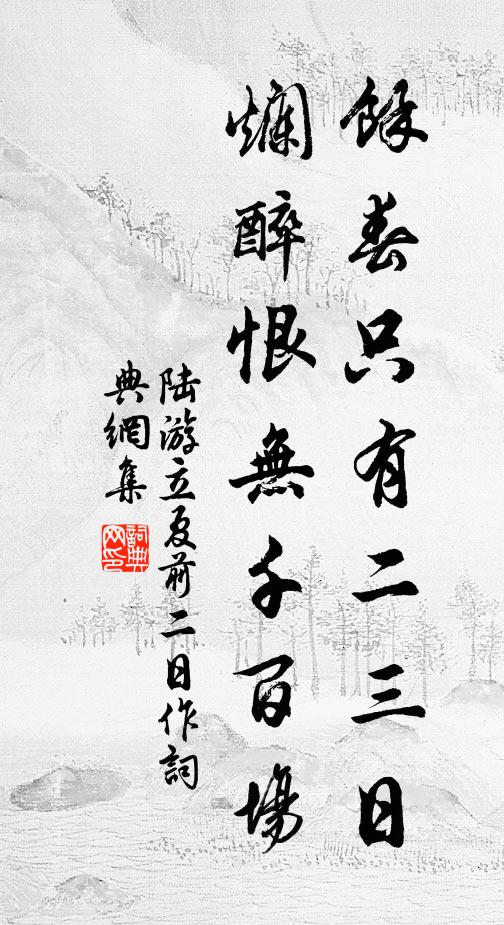 餘春只有二三日
爛醉恨無千百場
陆游立夏前二日作詞
典網集
詞典
网印